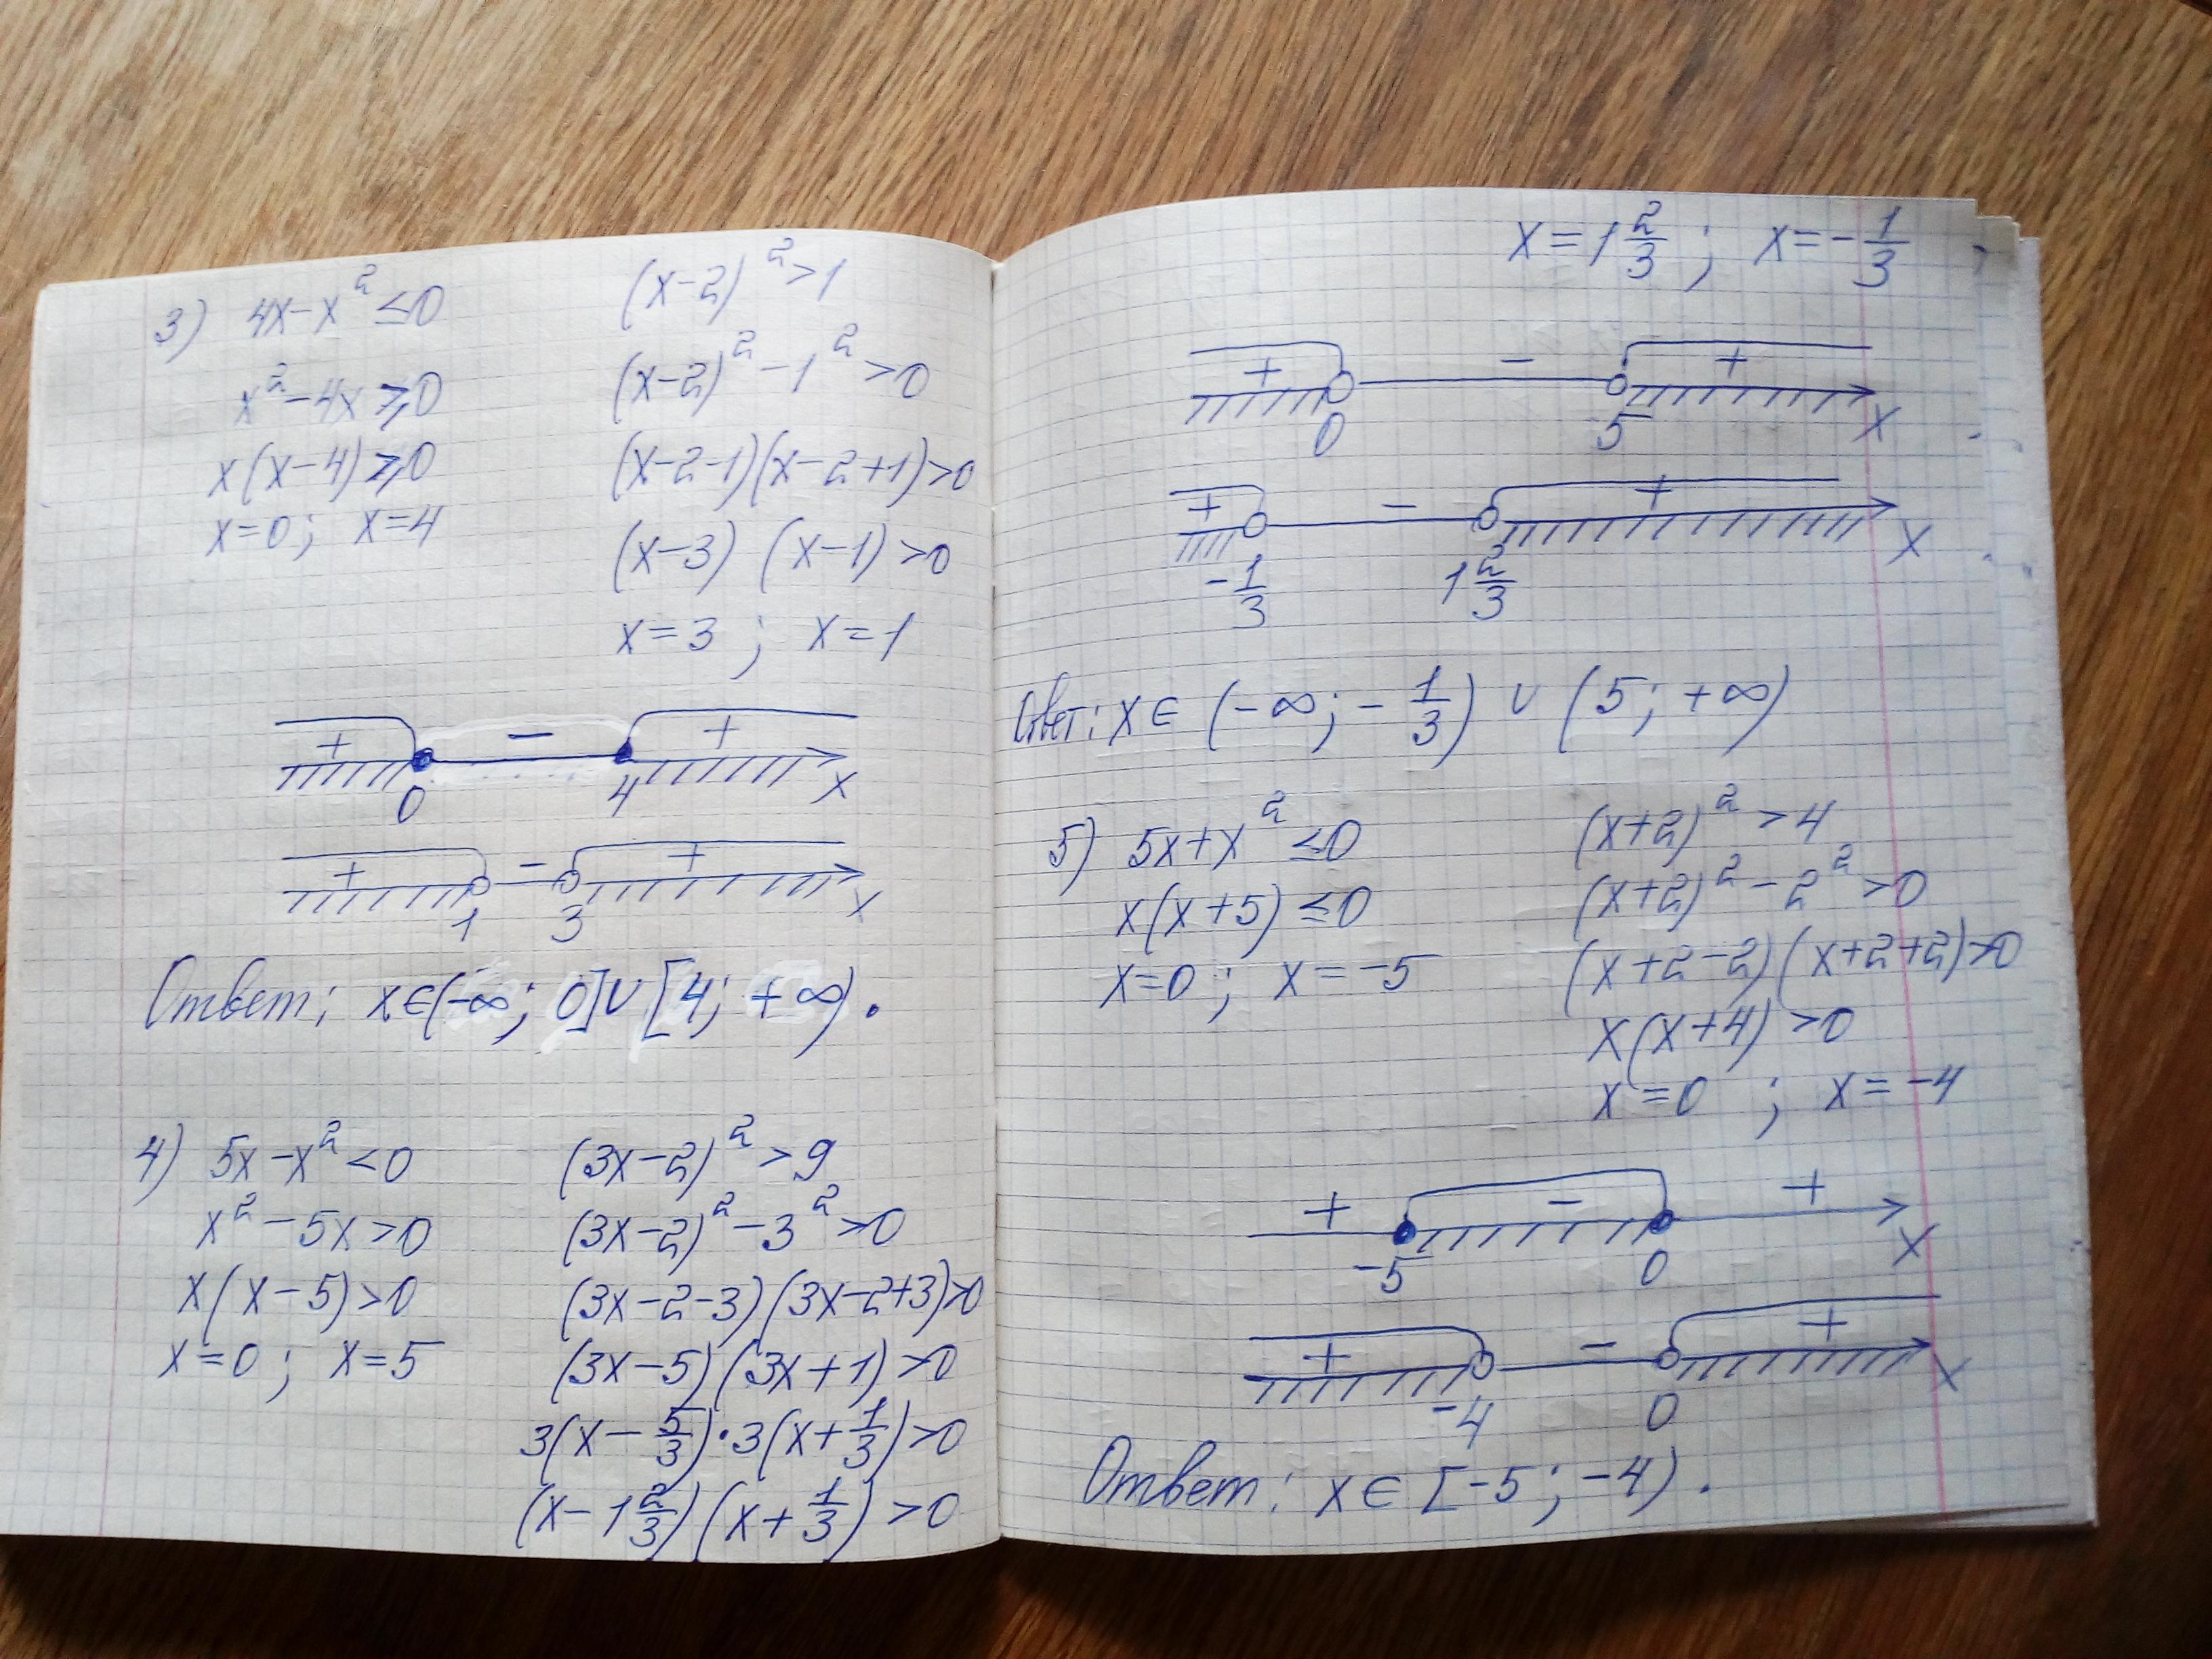 3) 4x-x² ≤0
x²-4x ⩾0
x(x-4)⩾0
x=0; x=4
(x-2)²>1
(x-2)²-1²>0
(x-2-1)(x-2+1)>0
(x-3)(x-1)>0
x=3; x=1
+ - +
0 4 x
+ - +
1 3 x
Ответ: x∈(-∞; 0]∪[4; +∞).
4) 5x-x²<0
x²-5x>0
x(x-5)>0
x=0; x=5
(3x-2)²>9
(3x-2)²-3²>0
(3x-2-3)(3x-2+3)>0
(3x-5)(3x+1)>0
3(x-5/3)•3(x+1/3)>0
(x-1 2/3)(x+1/3)>0
x=1 2/3; x=-1/3
+ - +
0 5 x
+ - +
-1/3 1 2/3 x
Ответ: x∈(-∞; -1/3)∪(5; +∞)
5) 5x+x² ≤0
x(x+5)≤0
x=0; x=-5
(x+2)²>4
(x+2)²-2²>0
(x+2-2)(x+2+2)>0
x(x+4)>0
x=0; x=-4
+ - +
-5 0 x
+ - +
-4 0 x
Ответ: x∈[-5; -4).